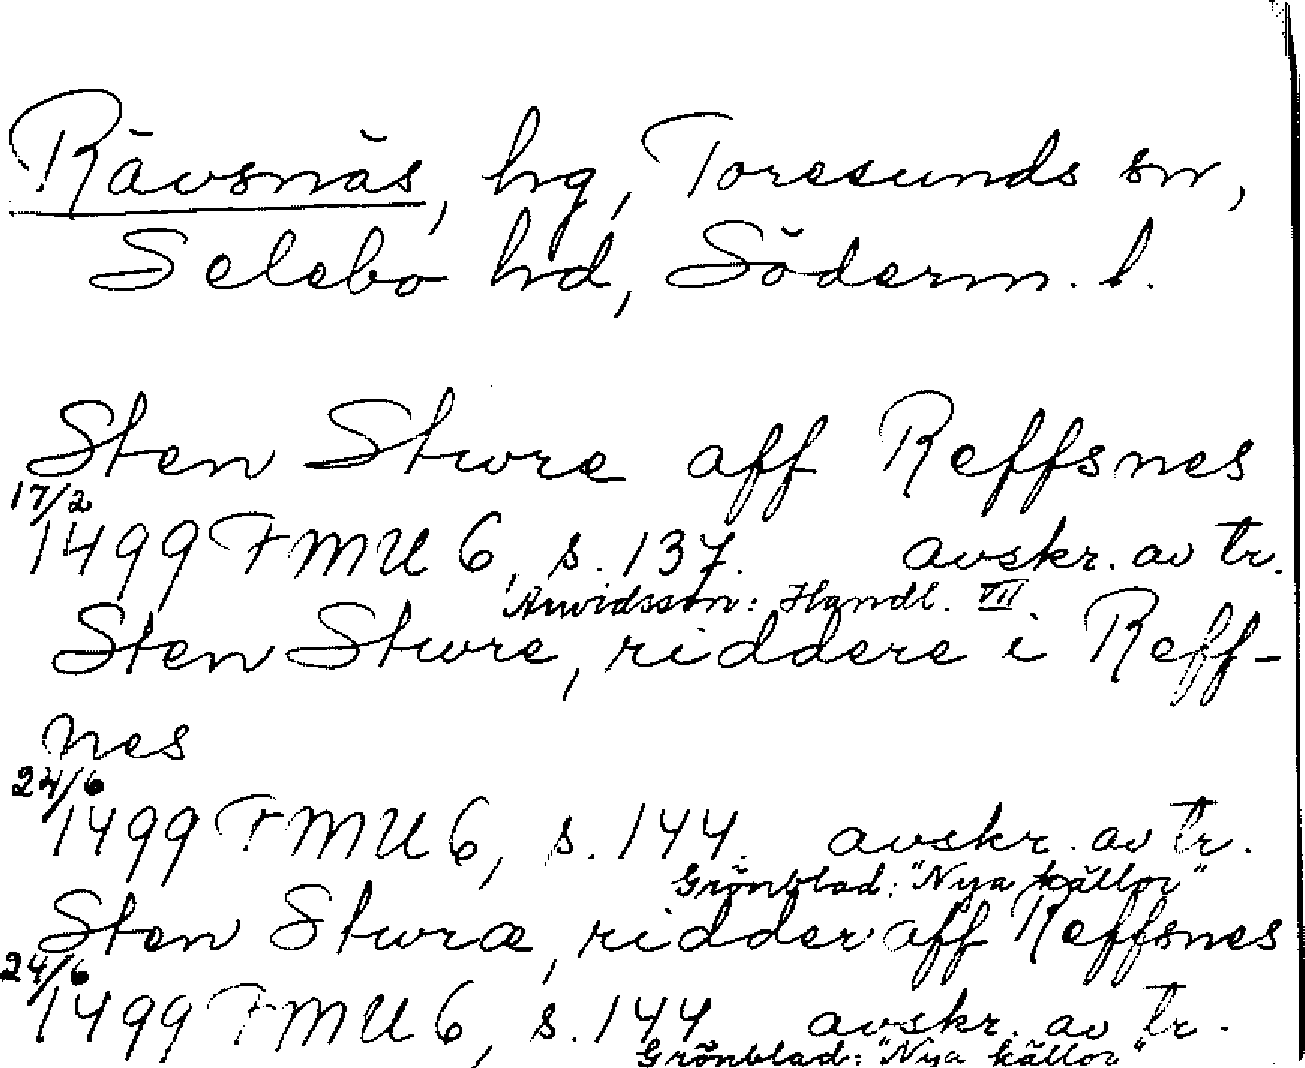 Rävsnäs, hg, Toresunds sn,
Selebo hd, Söderm. l.
Sten Stwre aff Reffsnes
17/2
1499 FMU 6, s. 137. avskr. av tr.
Arwidsson: Handl. III
Sten Stwre, riddere i Reff-
nes
24/6
1499 FMU 6, s. 144. avskr. av tr.
Grönblad: "Nya källor"
Sten Stwræ, ridder aff Reffsnes
24/6
1499 FMU 6, s. 144 avskr. av tr.
Grönblad: "Nya källor"